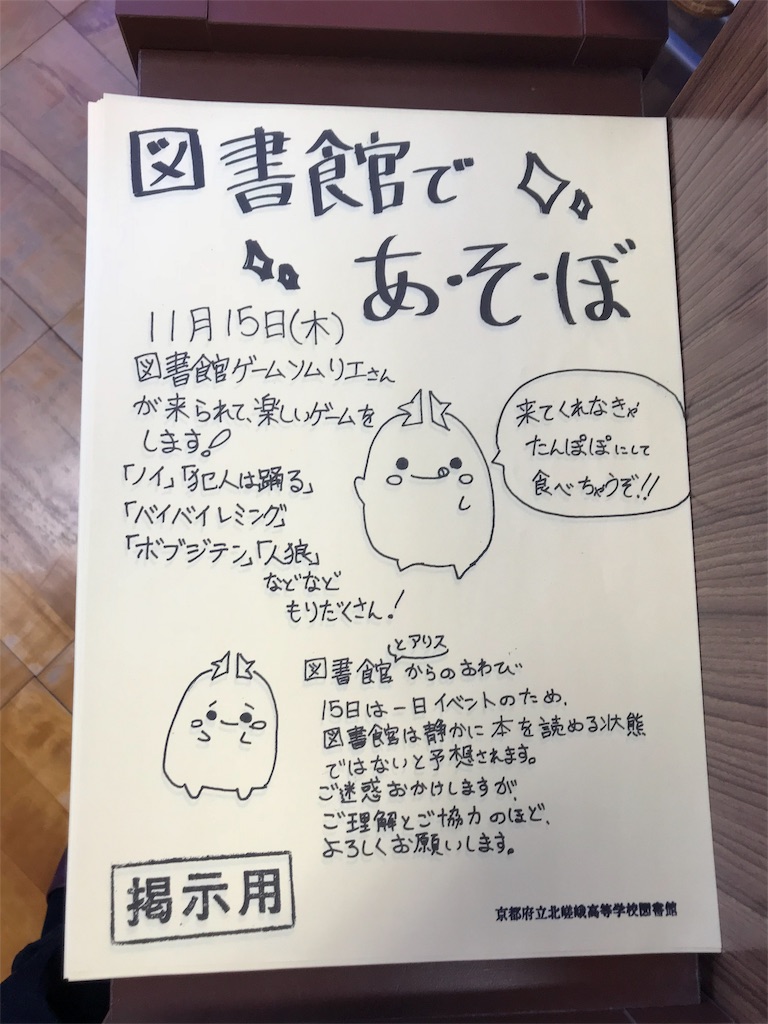 図書館で
あ・そ・ぼ
11月15日(木)
図書館ゲームソムリエさん
が来られて、楽しいゲームを
します!
「ノイ」「犯人は踊る」
「バイバイレミング」
「ボブジテン」「人狼」
などなど
もりだくさん!
来てくれなきゃ
たんぽぽにして
食べちゃうぞ!!
とアリス
図書館からのおわび
15日は一日イベントのため、
図書館は静かに本を読める状態
ではないと予想されます。
ご迷惑おかけしますが、
ご理解とご協力のほど、
よろしくお願いします。
掲示用
京都府立北嵯峨高等学校図書館